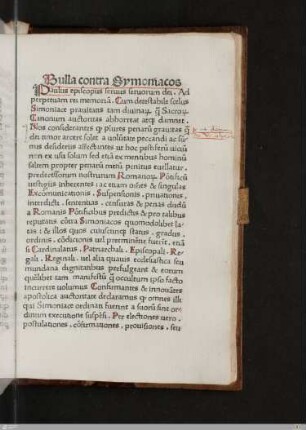 Bulla contra Symoniacos
Paulus episcopus seruus seruorum dei . Ad
perpetuam rei memoriã . Cum detestabile scelus
Simoniace prauitatis tam diuinoꝝ ꝙ Sacroꝝ
Canonum auctoritas abhorreat atqꝫ damnet .
Nos considerantes ꝙ plures penarũ grauitas ꝙ
dei timor arcere solet a volũtate peccandi ac su
mis desiderijs affectantes ut hoc pestiferũ viciũ
non ex usu solum sed etiã ex mentibus hominũ
saltem propter penarũ metũ penitus euellatur .
predecessorum nostrorum Romanoꝝ Põtificũ
uestigijs inherentes : ac oẽs & singulas
Excõmunicationis . Suspensionis . priuationis .
interdicti . sententias . censuras & penas dictũ
a Romanis Põtificibus predictis & pro talibus
reputatis cõtra Simoniacos quomodolibet la
tis : & illos quos cuiuscunqꝫ status . gradus .
ordinis . cõditionis uel preeminẽtie fuerit . etiã
si Cardinalatus . Patriarchali . Episcopali . Re-
gali . Reginali . uel alia quauis ecclesiastica seu
mundana dignitatibus perfulgeant & eorum
quẽlibet tam manifestũ ꝙ occultum ipso facto
incurrere uolumus Confirmantes & innouãtes
apostolica auctoritate declaramus ꝙ omnes illi
qui Simoniace ordinati fuerint a suorũ sint or-
dinum executione suspẽsi . Per electiones uero .
postulationes . cõfirmationes . prouisiones . seu